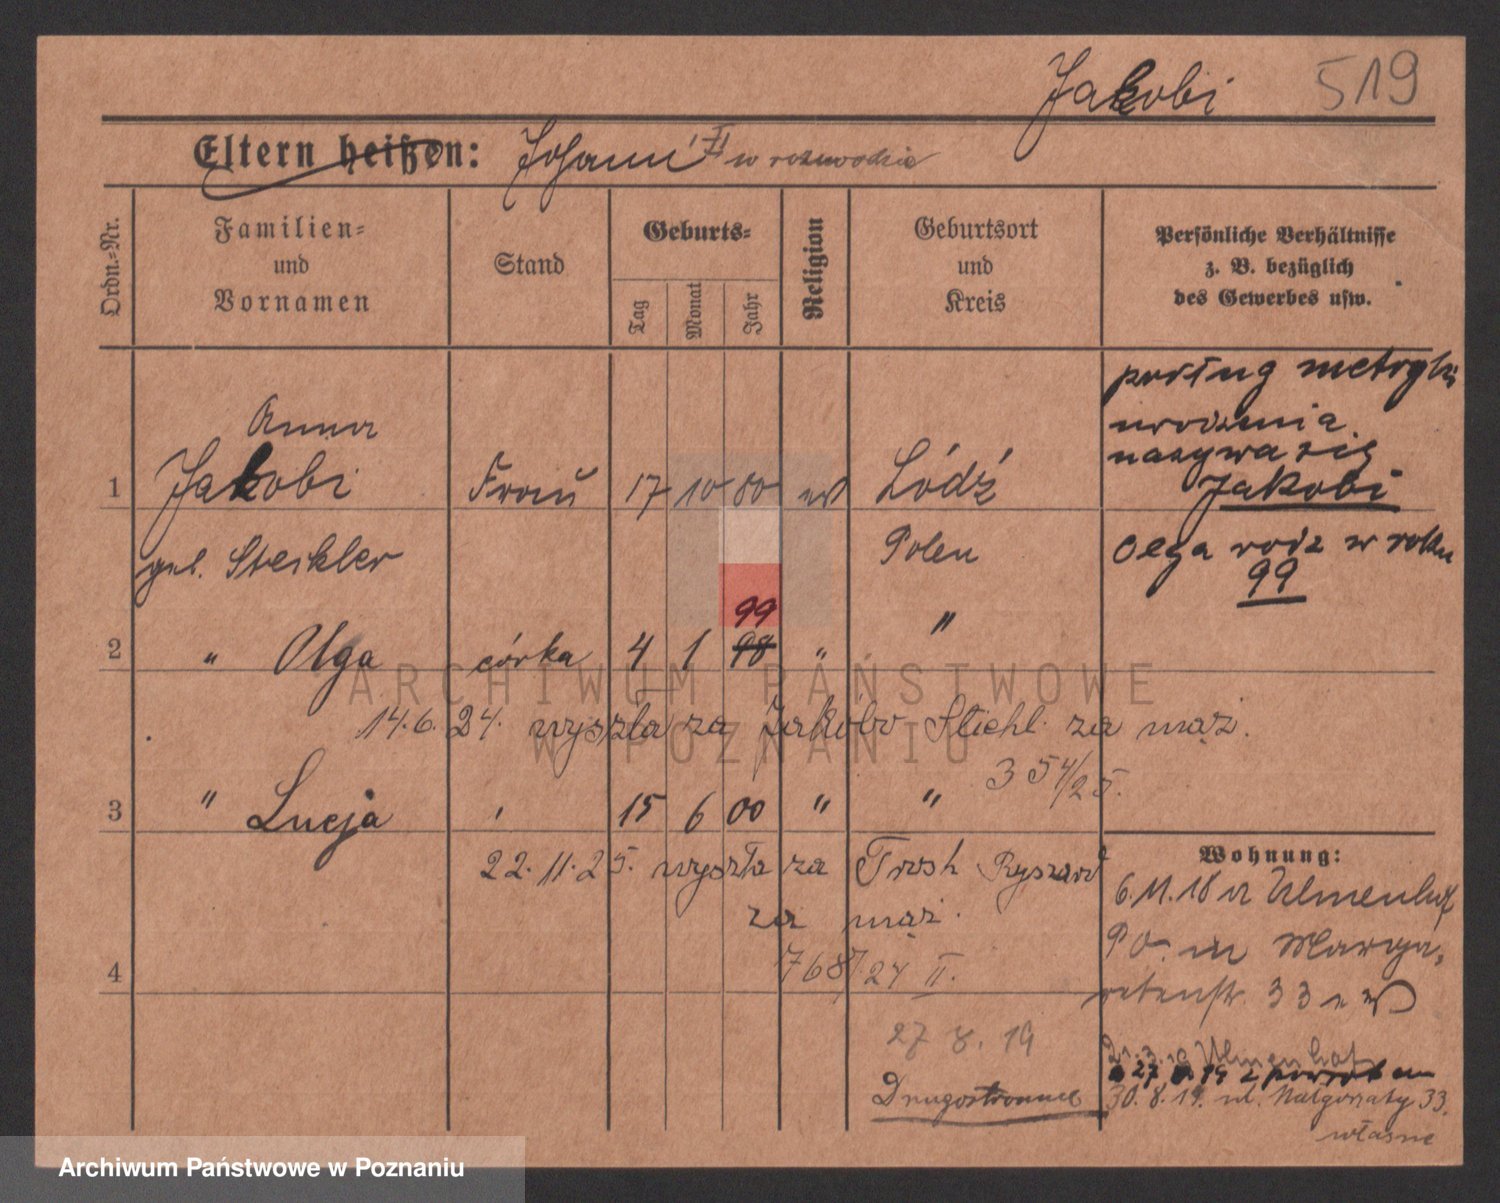 Jakobi 519
Eltern heißen: Johann II w rozwodzie
Ordn.-Nr.
Familien-
und
Vornamen
Stand
Geburts-
Tag
Monat
Jahr
Religion
Geburtsort
und
Kreis
Persönliche Verhältnisse
z. B. bezüglich
des Gewerbes usw.
podług metryki
urodzenia
nazywa się
Jakobi
Olga rodz w roku
99
Anna
1 Jakobi Frau 17 10 80 ev Łódź
geb. Steikler Polen
99
2 " Olga córka 4 1 98 " "
14.6.24. wyszła za Jakóbo Stiehl za mąż.
354/25.
3 " Lucja 15 6 00 " "
22.11.25. wyszła za Trosh Ryszard
za mąż.
4 768/24 II.
27 8. 19
Drugostronne
Wohnung:
6.11.18 Ulmenhof
Po. Marga-
retenstr. 33
21.3.19 Ulmenhof
27. 8. 19 z powrotem
30.8.19. ul. Małgorzaty 33.
własne
ARCHIWUM PAŃSTWOWE
W POZNANIU
Archiwum Państwowe w Poznaniu